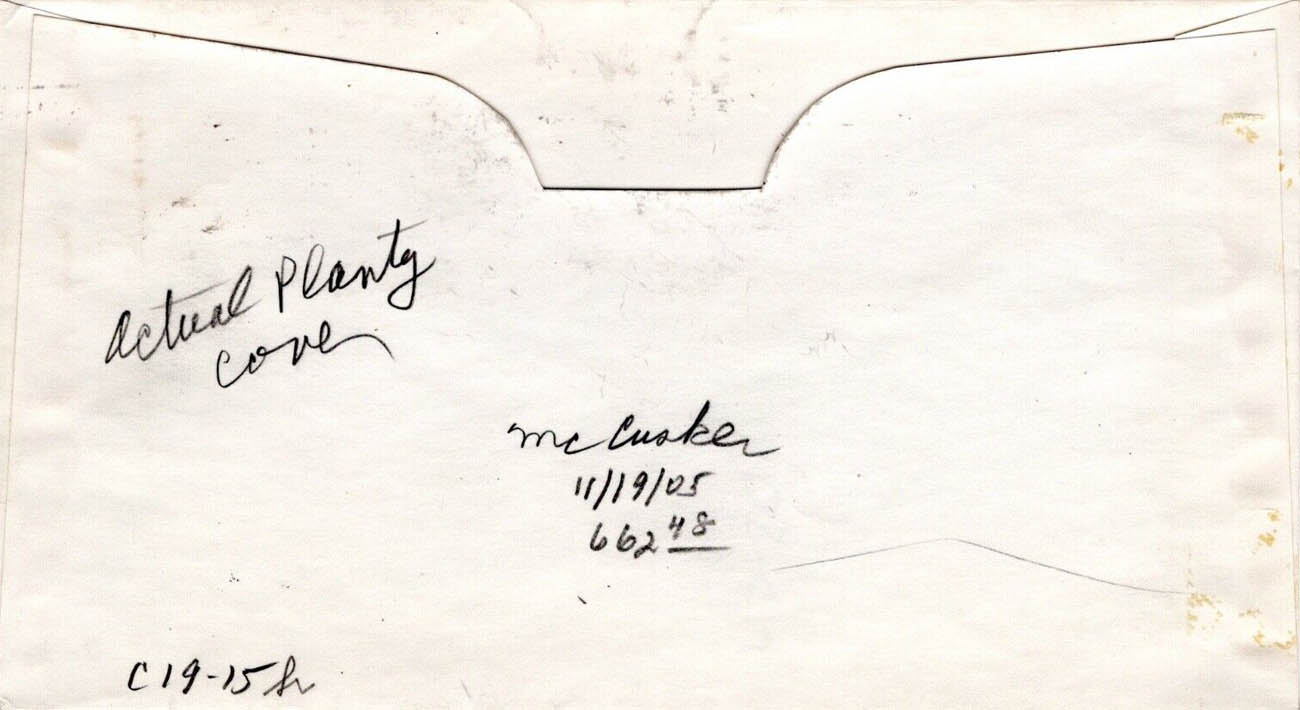 Actual Planty
cover
McCusker
11/19/05
662 48
C19-15